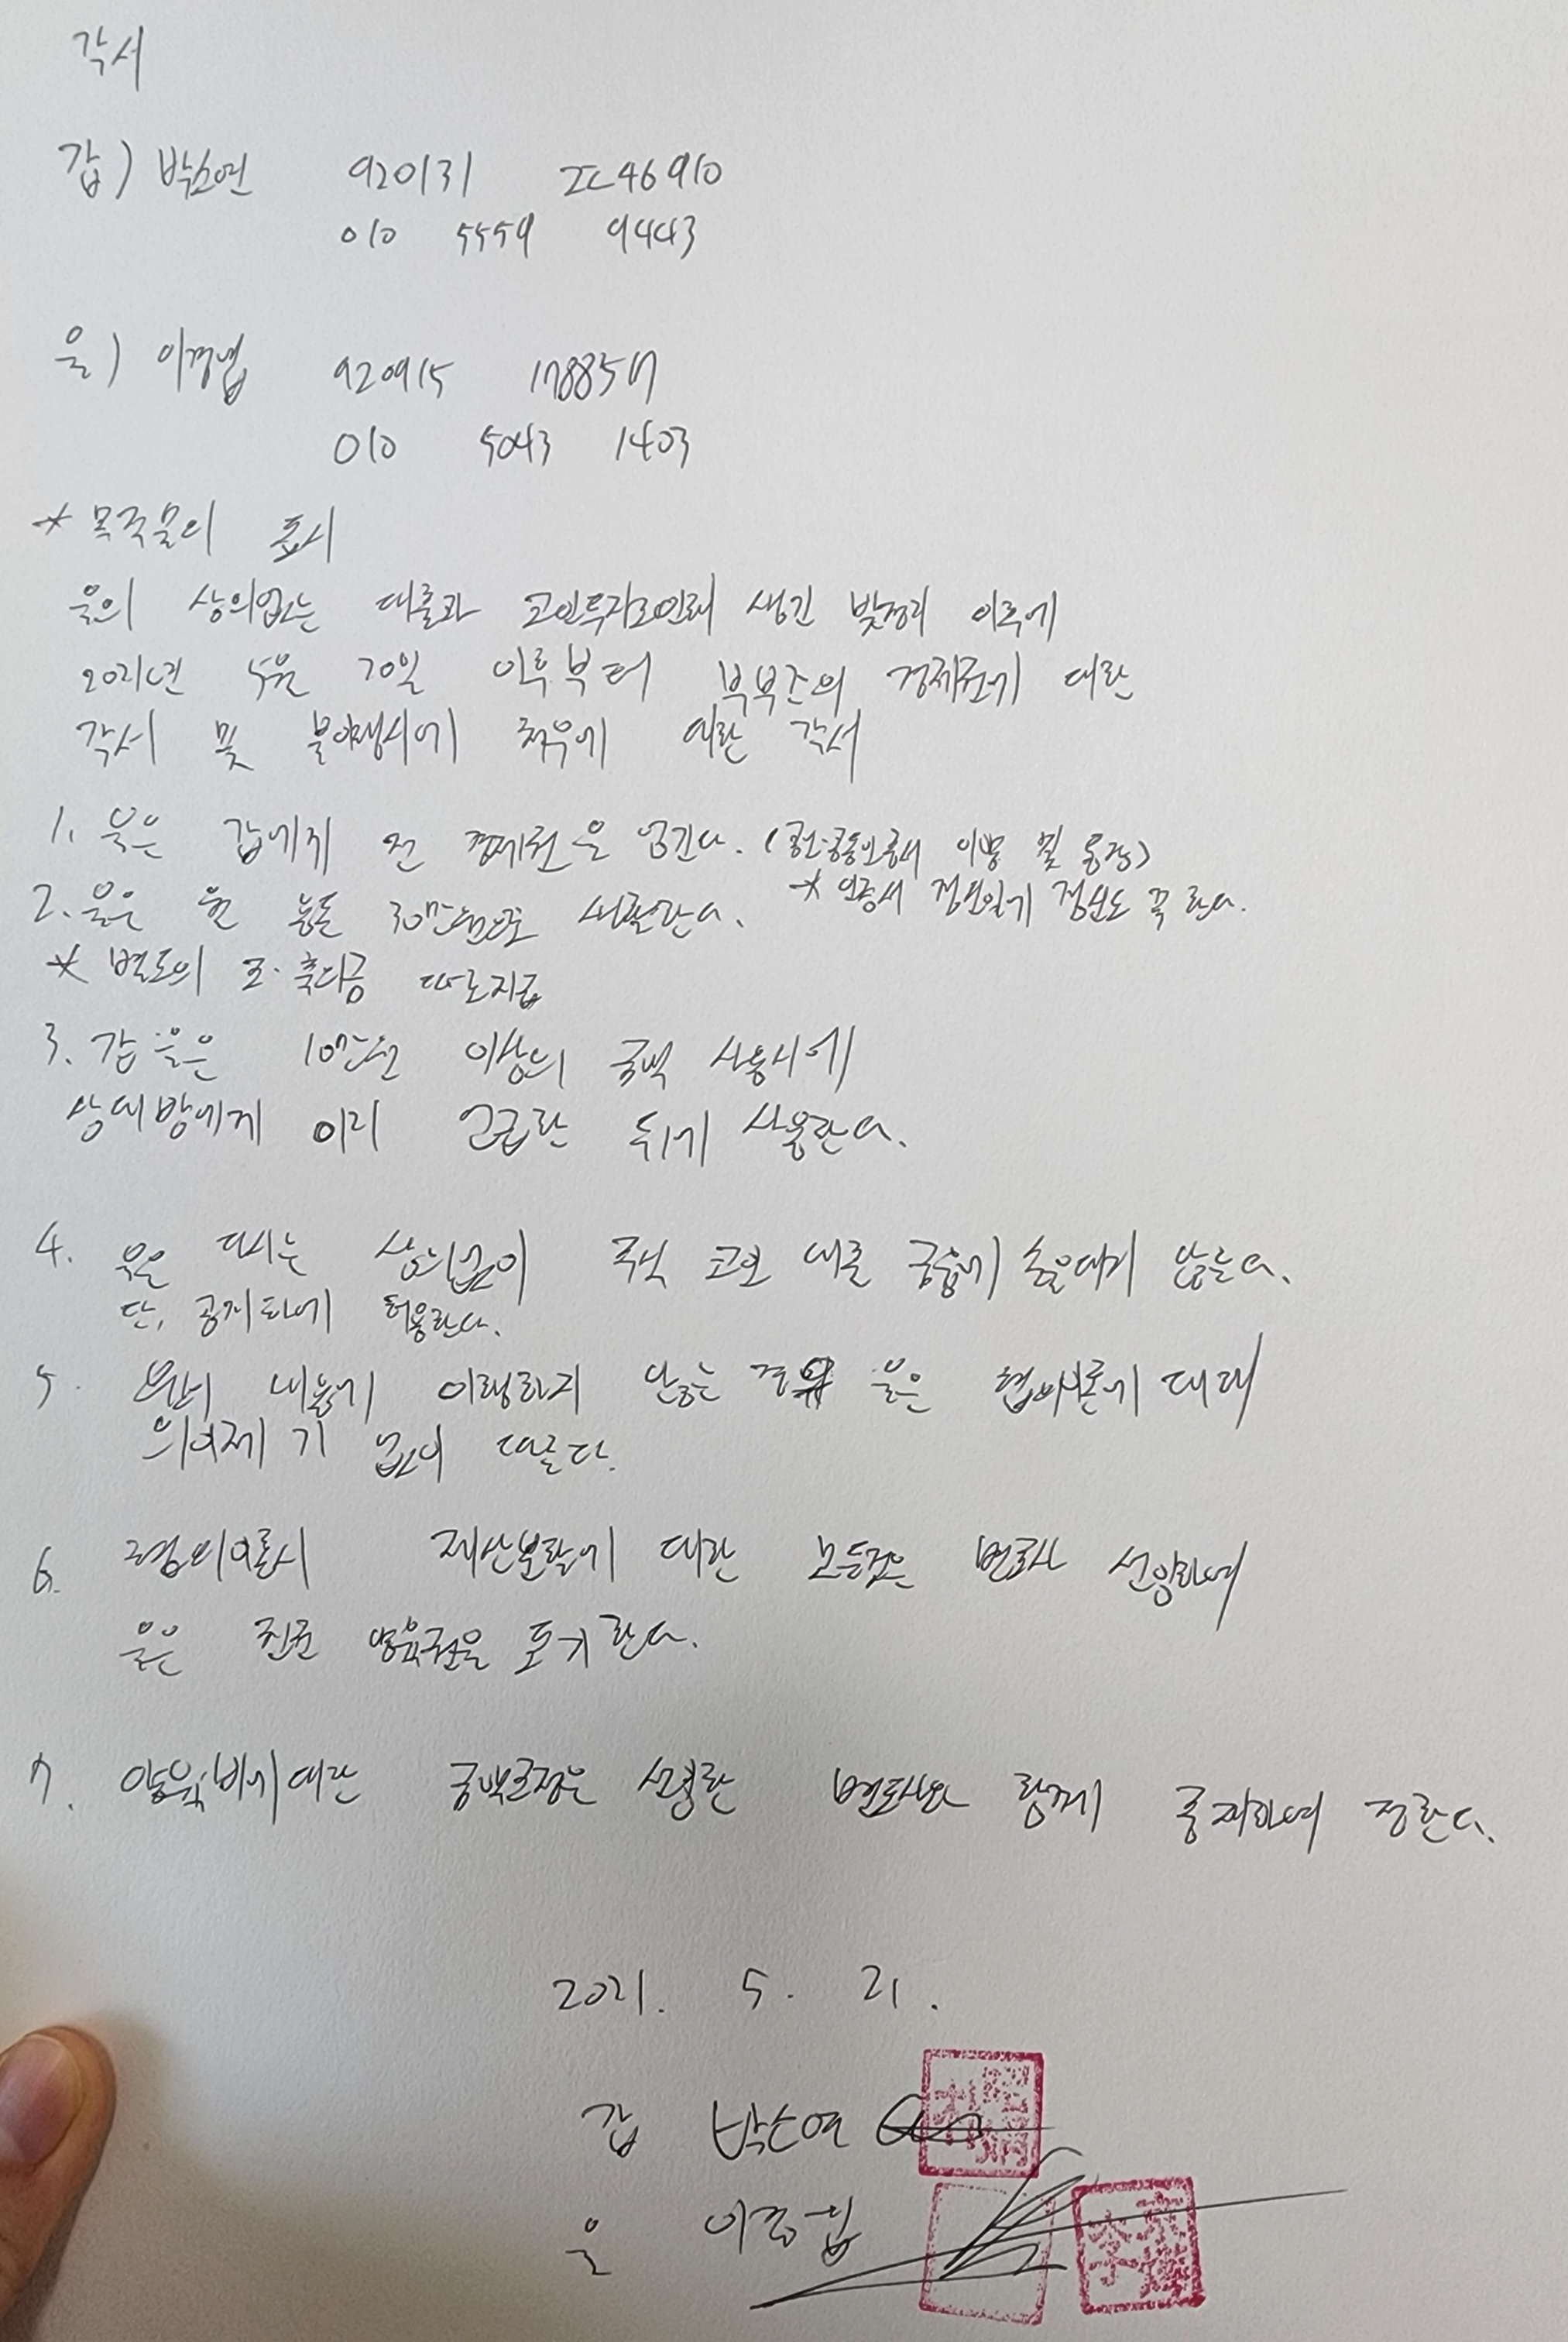 각서
갑) 박소연 920131
010 5559 9443
을) 이경엽 920915 1788517
010 5043 1403
* 목적물의 표시
을의 상의없는 대출과 코인투자로인해 생긴 빚정리 이후에
2021년 5월 20일 이후부터 부부간의 경제권에 대한
각서 및 불이행시에 처우에 대한 각서
1. 을은 갑에게 전 경제권을 넘긴다. ( 이명 및 통장)
2. 을은 월 용돈 30만원으로 생활한다. * 정산도 꼭 한다.
* 별도의 조·축의금 따로지급
3. 갑 을은 10만원 이상의 금액 사용시에
상대방에게 미리 언급한 뒤에 사용한다.
4. 을은 다시는 상의없이 주식 코인 대출 금융에 손을대지 않는다.
단, 공지하에 허용한다.
5. 위의 내용에 이행하지 않는 경우 을은 협의이혼에 대해
이의제기 없이 따른다.
6. 협의이혼시 재산분할에 대한 모든것은 변호사 선임하여
을은 친권 양육권을 포기한다.
7. 양육비에대한 금액조정은 선임한 변호사와 함께 중재하여 정한다.
2021. 5. 21.
갑 박소연
을 이경엽